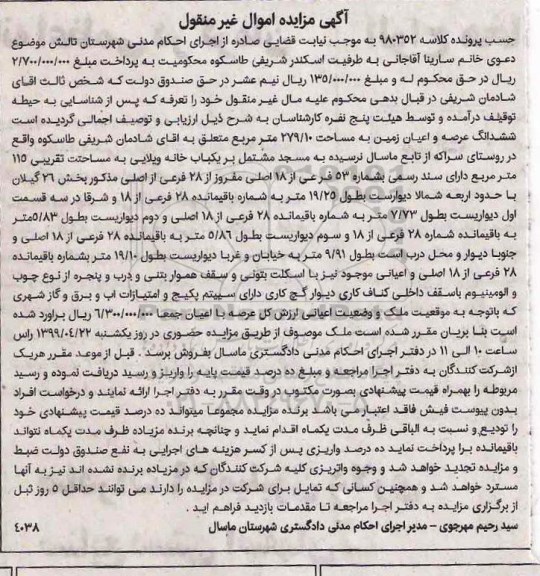 آگهی مزایده اموال غیر منقول
حسب پرونده کلاسه ۹۸۰۳۵۲ به موجب نیابت قضایی صادره از اجرای احکام مدنی شهرستان تالش موضوع
دعوی خانم سارینا آقاجانی به طرفیت اسکندر شریفی طاسکوه محکومیت به پرداخت مبلغ ۲/۷۰۰/۰۰۰/۰۰۰
ریال در حق محکوم له و مبلغ ۱۳۵/۰۰۰/۰۰۰ ریال نیم عشر در حق صندوق دولت که شخص ثالث اقای
شادمان شریفی در قبال بدهی محکوم علیه مال غیر منقول خود را تعرفه که پس از شناسایی به حیطه
توقیف درآمده و توسط هیئت پنج نفره کارشناسان به شرح ذیل ارزیابی و توصیف اجمالی گردیده است
ششدانگ عرصه و اعیان زمین به مساحت ۲۷۹/۱۰ متر مربع متعلق به اقای شادمان شریفی طاسکوه واقع
در روستای سراکه از تابع ماسال نرسیده به مسجد مشتمل بر یکباب خانه ویلایی به مساحتت تقریبی ۱۱۵
متر مربع دارای سند رسمی بشماره ۵۳ فرعی از ۱۸ اصلی مفروز از ۲۸ فرعی از اصلی مذکور بخش ۲۶ گیلان
با حدود اربعه شمالا دیوارست بطول ۱۹/۲۵ متر به شماره باقیمانده ۲۸ فرعی از ۱۸ و شرقا در سه قسمت
اول دیواریست بطول ۷/۷۳ متر به شماره باقیمانده ۲۸ فرعی از ۱۸ اصلی و دوم دیواریست بطول ۵/۸۳متر
به باقیمانده شماره ۲۸ فرعی از ۱۸ و سوم دیواریست بطول ۵/۸۶ متر به باقیمانده ۲۸ فرعی از ۱۸ اصلی و
جنوبا دیوار و محل درب است بطول ۹/۹۱ متر به خیابان و غربا دیواریست بطول ۱۹/۱۰ متر بشماره باقیمانده
۲۸ فرعی از ۱۸ اصلی و اعیانی موجود نیز با اسکلت بتونی و سقف هموار بتنی و درب و پنجره از نوع چوب
و الومینیوم باسقف داخلی کناف کاری دیوار گچ کاری دارای سیپتم پکیج و امتیازات اب و برق و گاز شهری
که باتوجه به موقعیت ملک و وضعیت اعیانی ارزش کل عرصه با اعیان جمعا ۶/۳۰۰/۰۰۰/۰۰۰ ریال براورد شده
است بنا بریان مقرر شده است ملک موصوف از طریق مزایده حضوری در روز یکشنبه ۱۳۹۹/۰۴/۲۲ راس
ساعت ۱۰ الی ۱۱ در دفتر اجرای احکام مدنی دادگستری ماسال بفروش برسد . قبل از موعد مقرر هریک
ازشرکت کنندگان به دفتر اجرا مراجعه و مبلغ ده درصد قیمت پایه را واریز و رسید دریافت نموده و رسید
مربوطه را بهمراه قیمت پیشنهادی بصورت مکتوب در وقت مقرر به دفتر اجرا ارائه نمایند و درخواست افراد
بدون پیوست فیش فاقد اعتبار می باشد برنده مزایده مجموعا میتواند ده درصد قیمت پیشنهادی خود
را تودیع و نسبت به الباقی ظرف مدت یکماه اقدام نماید و چنانچه برنده مزیاده ظرف مدت یکماه نتواند
باقیمانده برا پرداخت نماید ده درصد واریزی پس از کسر هزینه های اجرایی به نفع صندوق دولت ضبط
و مزایده تجدید خواهد شد و وجوه واتریزی کلیه شرکت کنندگان که در مزیاده برنده نشده اند نیز به آنها
مسترد خواهد شد و همچنین کسانی که تمایل برای شرکت در مزایده را دارند می توانند حداقل ۵ روز تبل
از برگزاری مزایده به دفتر اجرا مراجعه تا مقدمات بازدید فراهم اید .
سید رحیم مهرجوی – مدیر اجرای احکام مدنی دادگستری شهرستان ماسال ۴۰۳۸